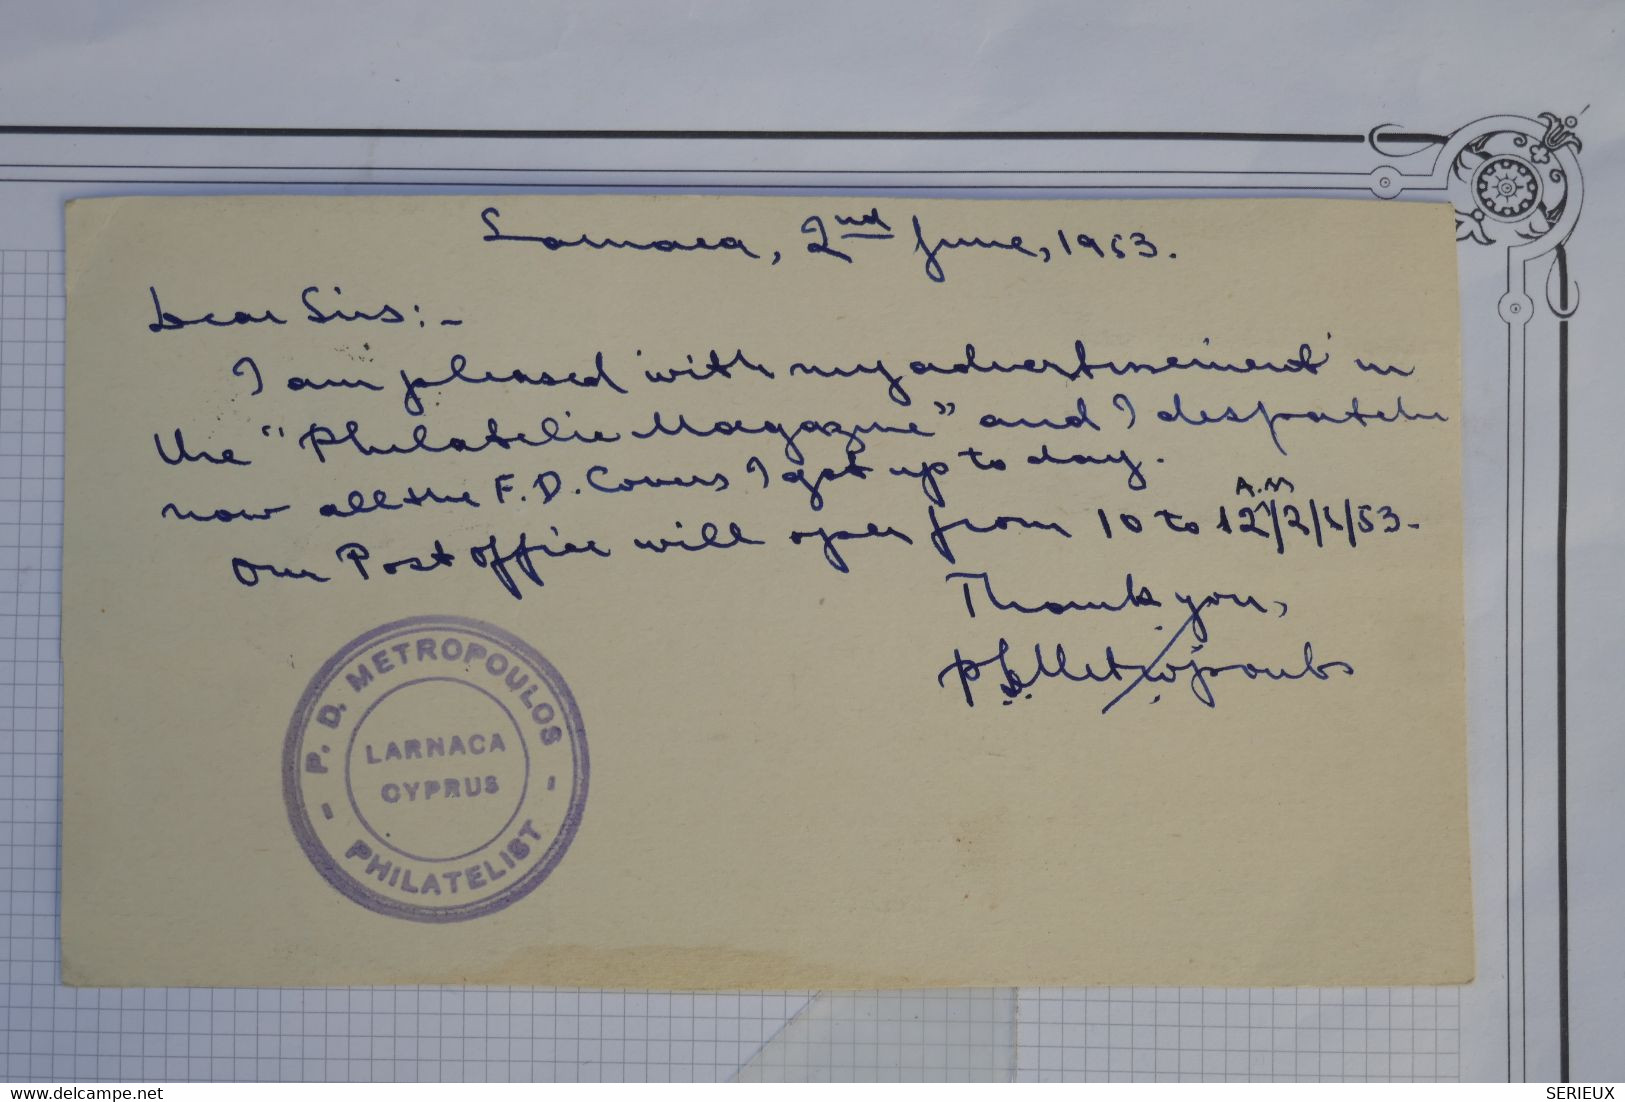 Larnaca, 2nd June, 1953.
Dear Sirs:-
I am pleased with my advertisement in
the "Philatelic Magazine" and I despatch
now all the F.D. Covers I got up to day.
Our Post office will open from 10 to 12 A.M/2/6/53-
Thank you,
P.D. Metropoulos
P. D. METROPOULOS
LARNACA
CYPRUS
- PHILATELIST -
SERIEUX